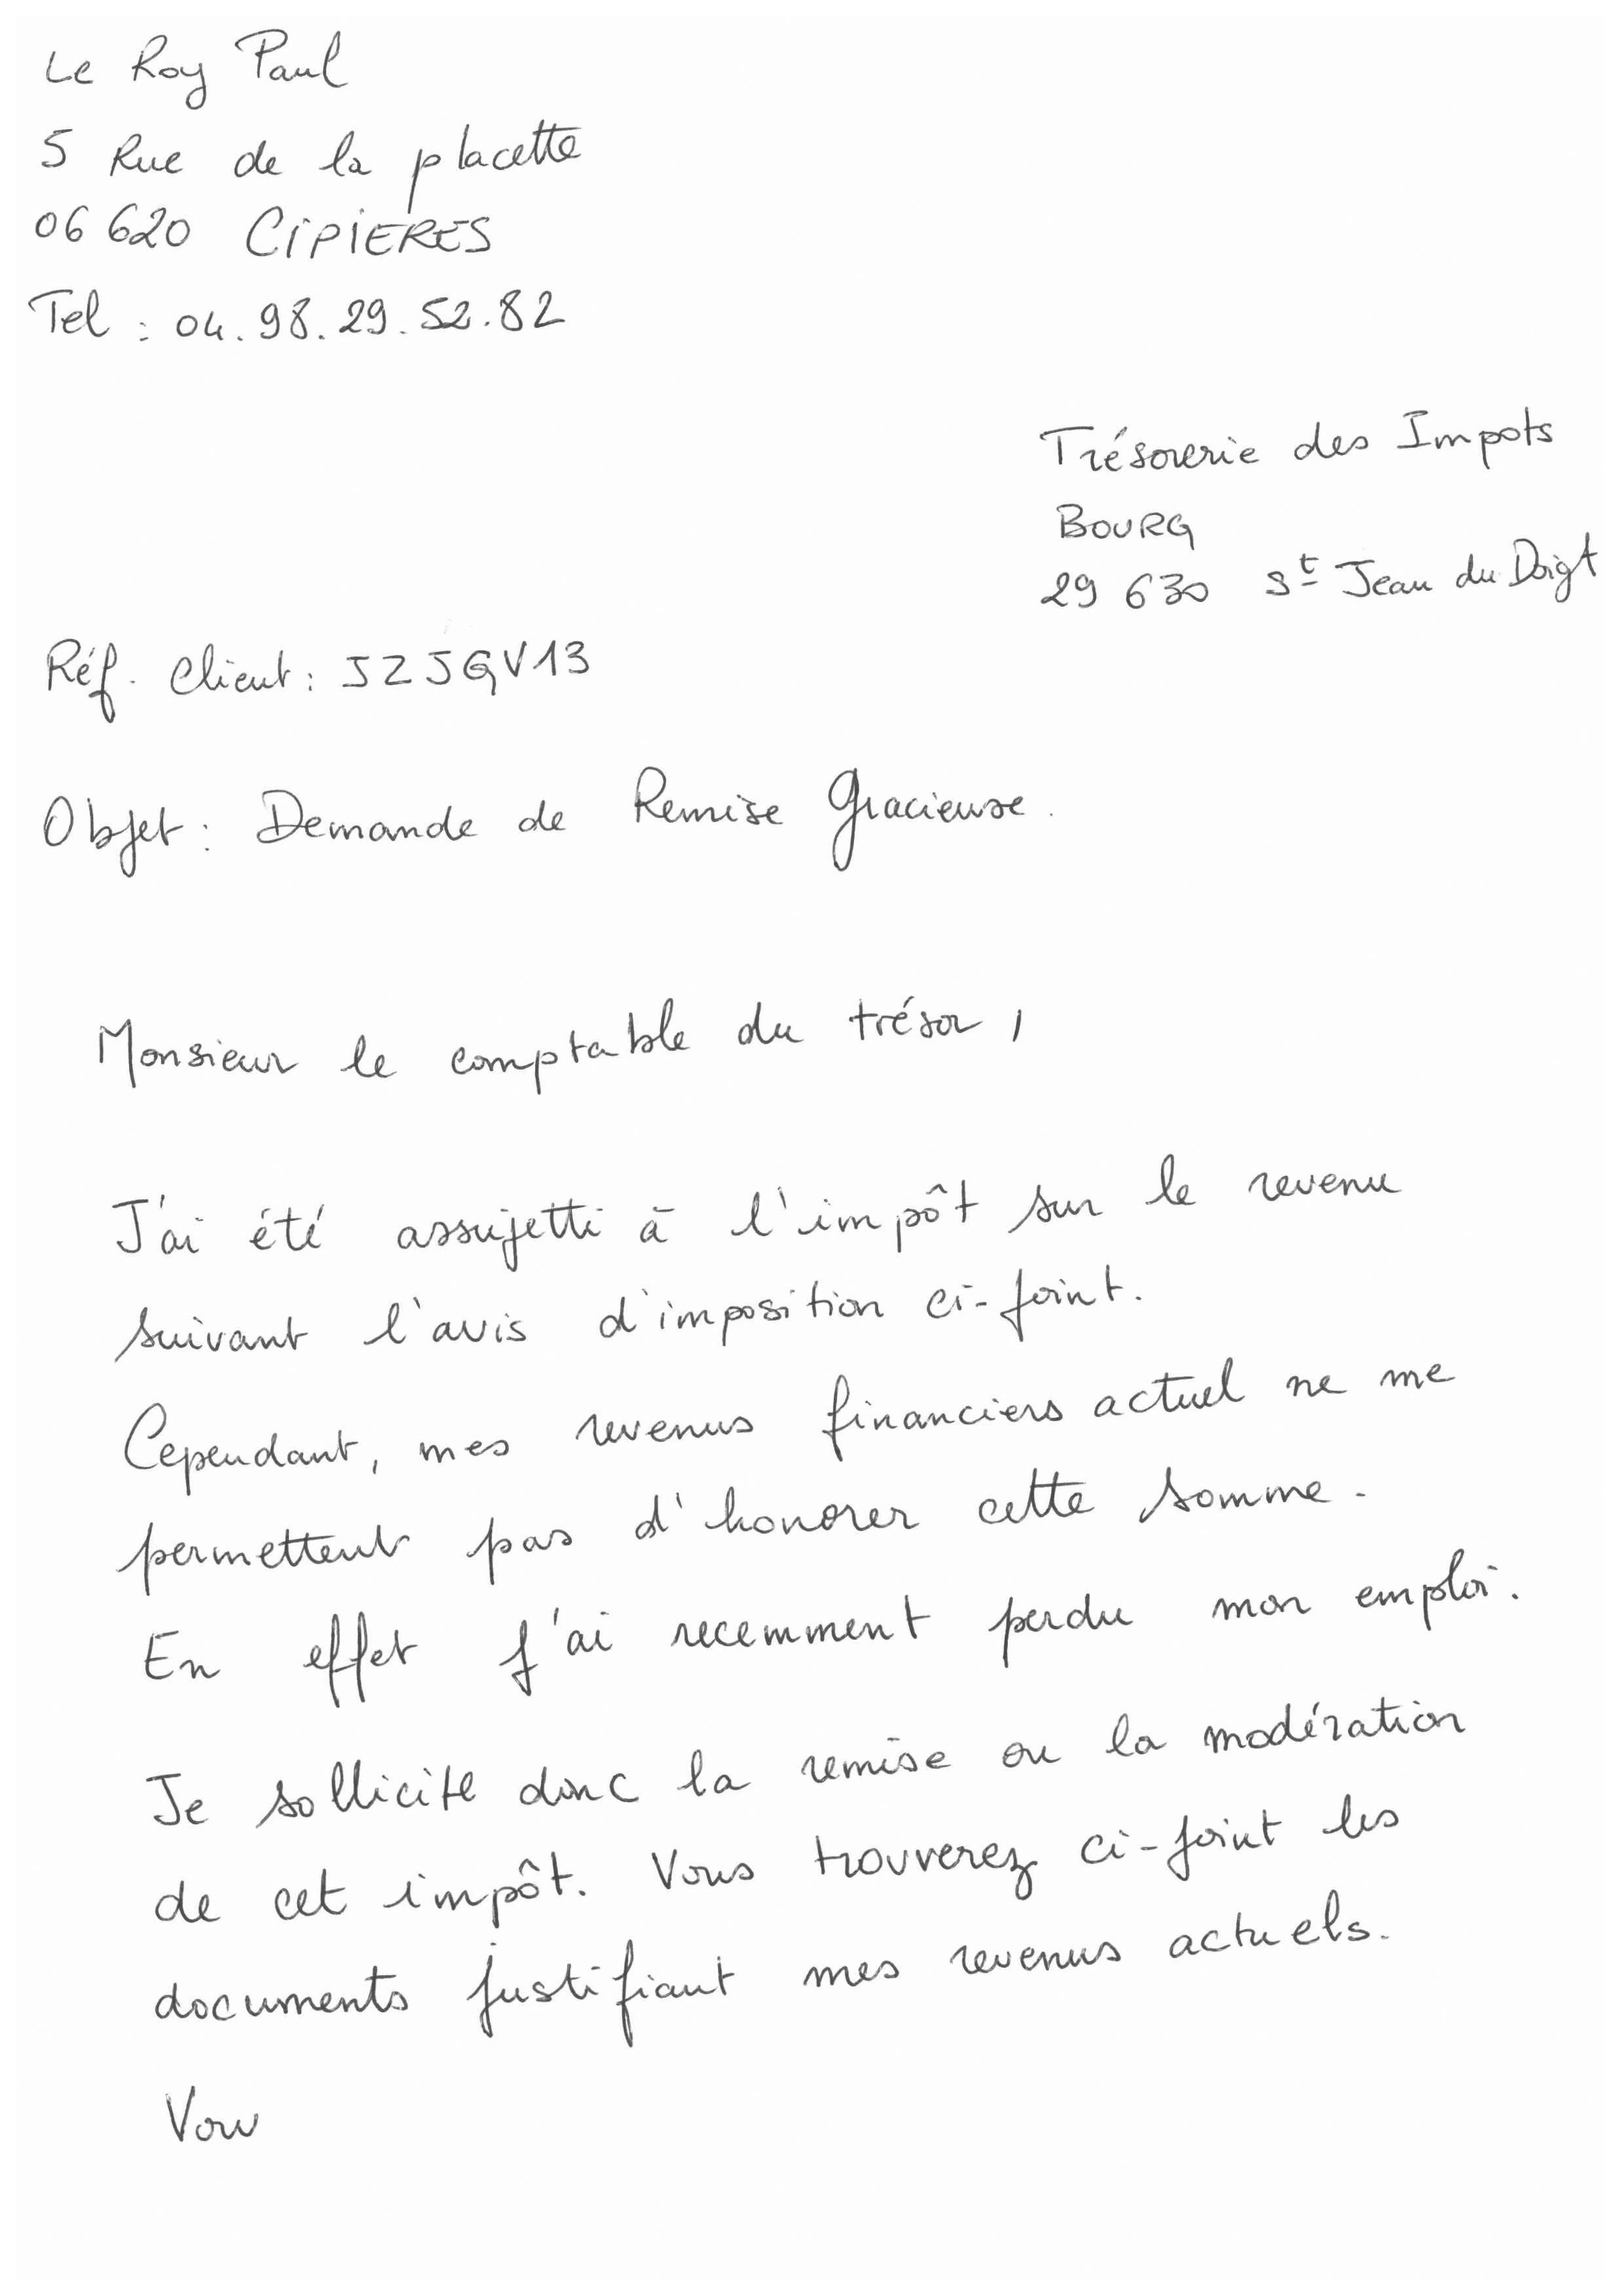 Le Roy Paul
5 Rue de la placette
06 620 CIPIERES
Tel : 04.98.29.52.82
Trésorerie des Impots
BOURG
29 630 St Jean du Doigt
Réf. Client : JZJGV13
Objet : Demande de Remise Gracieuse.
Monsieur le comptable du trésor,
J'ai été assujetti à l'impôt sur le revenu
suivant l'avis d'imposition ci-joint.
Cependant, mes revenus financiers actuel ne me
permettent pas d'honorer cette somme.
En effet j'ai recemment perdu mon emploi.
Je sollicite donc la remise ou la modération
de cet impôt. Vous trouverez ci-joint les
documents justifiant mes revenus actuels.
Vou